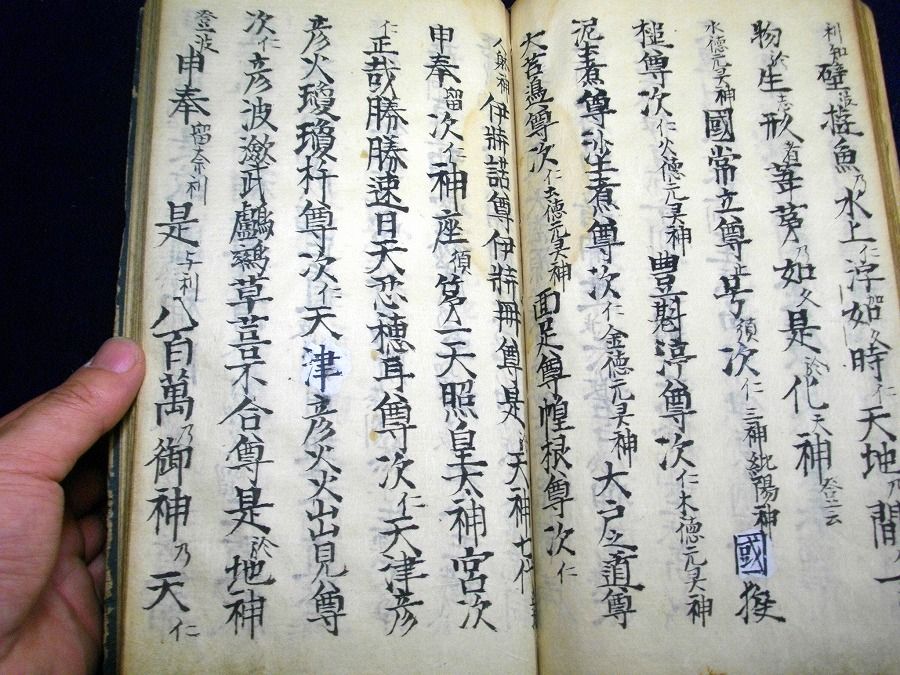 利知壁波遊魚乃水上仁浮加如久時仁天地乃間久一
物於生志形者葦芽乃如久是於化天神登云
水德元㒵神國常立尊止号須次仁三神純陽神國狹
槌尊次仁火德元㒵神豊斟渟尊次仁木德元㒵神
泥土煮尊沙土煮尊次仁金德元㒵神大戸之道尊
大苫邉尊次仁土德元㒵神面足尊惶根尊次仁
人躰神伊弉諾尊伊弉冊尊是天神七代
申奉留次仁神座須第一天照皇大神宮次
仁正哉勝勝速日天忍穂耳尊次仁天津彦
彦火瓊瓊杵尊次仁天津彦火火出見尊
次仁彦波瀲武鸕鷀草葺不合尊是於地神
登波申奉留奈利是与利八百萬乃御神乃天仁